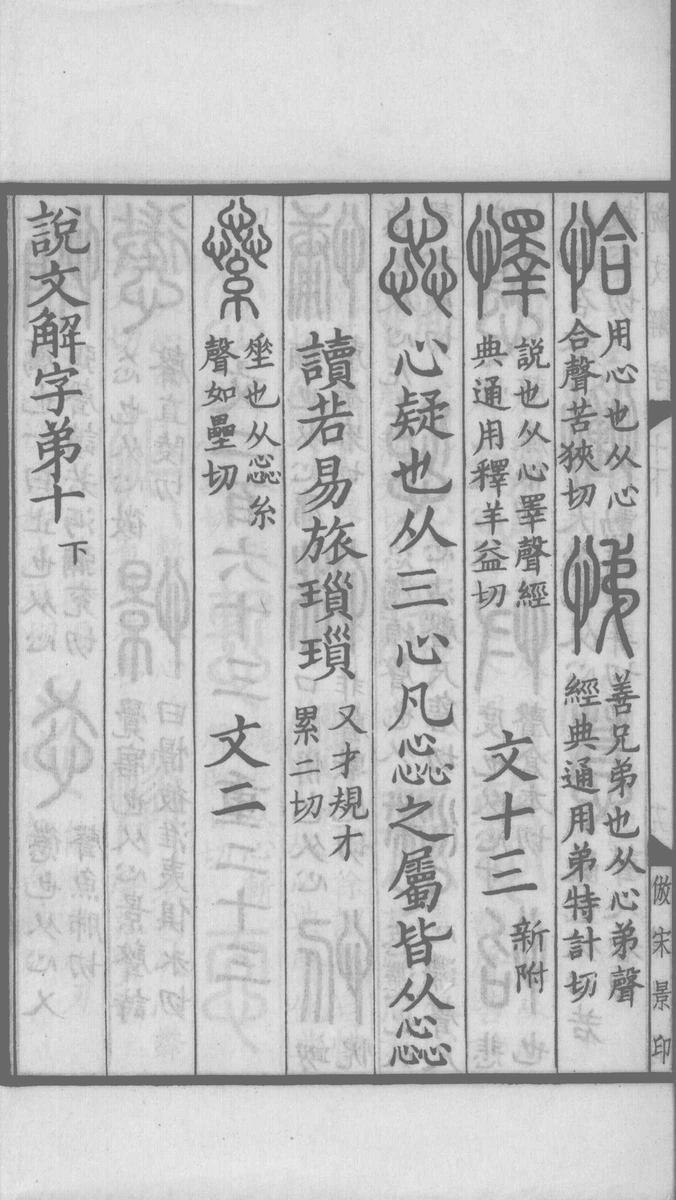 恰 用心也从心合聲苦狹切 悌 善兄弟也从心弟聲經典通用弟特計切
懌 說也从心睪聲經典通用釋羊益切 文十三 新附
惢 心疑也从三心凡惢之屬皆从惢
讀若易旅瑣瑣 又才規才累二切
繠 𡋲也从惢糸聲如壘切 文二
說文解字弟十 下
倣宋景印